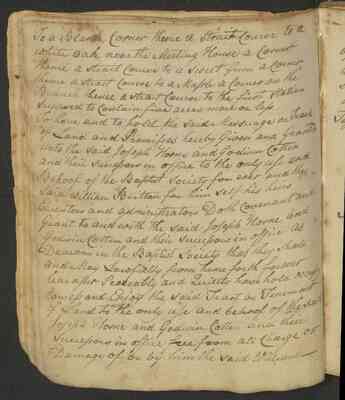 to a Black Corner thence a Strait Course to a
white oak near the Meeting House a Corner
thence a strait Course to a sweet gum a Corner
thence a strait Course to a Maple a Corner on the
Branch thence a strait Course to the first station
Supposed to Contain five acres more or less
To have and to hold the said Messuage or tract
of Land and Premises hereby Given and granted
unto the said Joseph Horne and Godwin Cotten
and their Successors in office to the only use and
Behoof of the Baptist Society for ever and the
Said William Brittan for him self his heirs
Executors and administrators Doth Covenant and
Grant to and with the said Joseph Horne and
Godwin Cotten and their Successors in office as
Deacons in the Baptist Society that they shall
and May Lawfully from hence forth forever
hereafter Peaceably and Quietly have hold occupy
Possess and Enjoy the said Tract or Tenement
of Land to the only use and behoof of the said
Joseph Horne and Godwin Cotten and their
Successors in office free from all Charge or
Damage of or by him the said William